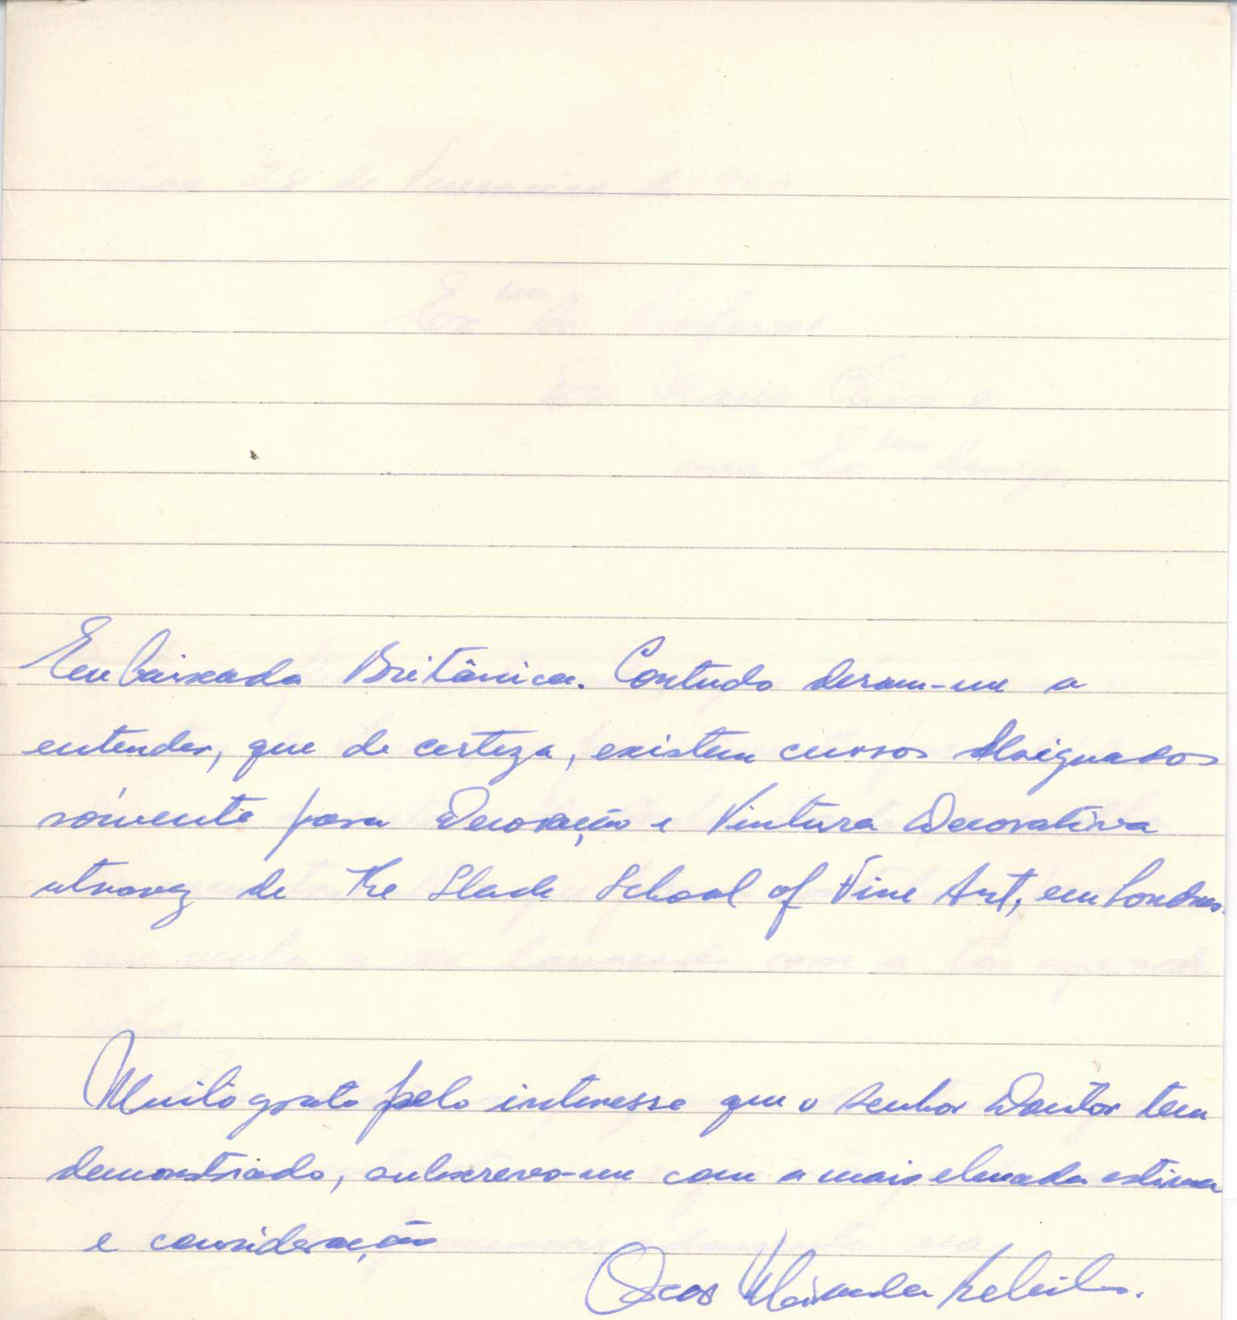 Embaixada Britânica. Contudo deram-me a
entender, que de certeza, existem cursos designados
sòmente para Decoração e Pintura Decorativa
atravez de The Slade School of Fine Art, em Londres.
Muito grato pelo interesse que o senhor Doutor tem
demonstrado, subscrevo-me com a mais elevada estima
e consideração
Miranda